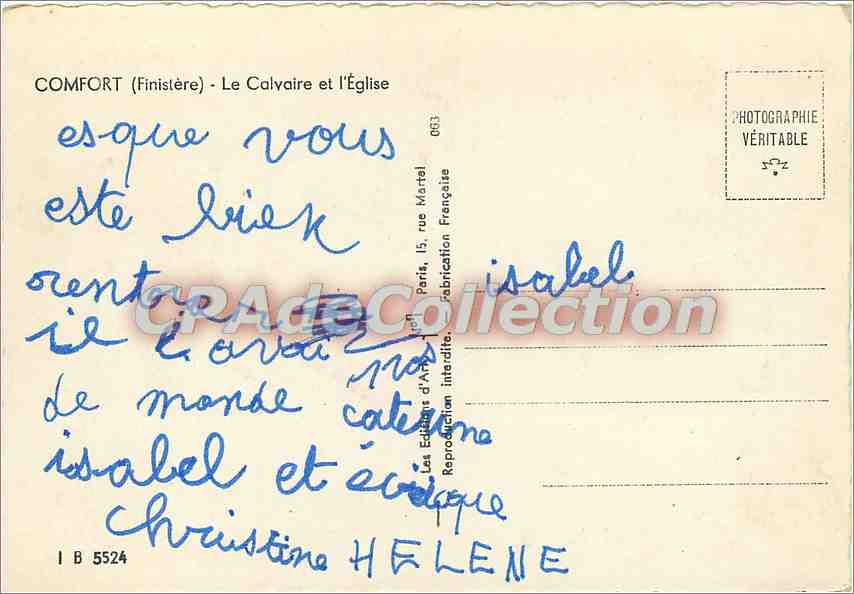 COMFORT (Finistère) - Le Calvaire et l'Église
esque vous
este bien
rentrian
il i avai
de monde caterine
isabel et
christine HELENE
I B 5524
063
Les Editions d'Art Paris, 15, rue Martel
Reproduction interdite. — Fabrication Française
PHOTOGRAPHIE
VÉRITABLE
isabel
CPAdeCollection